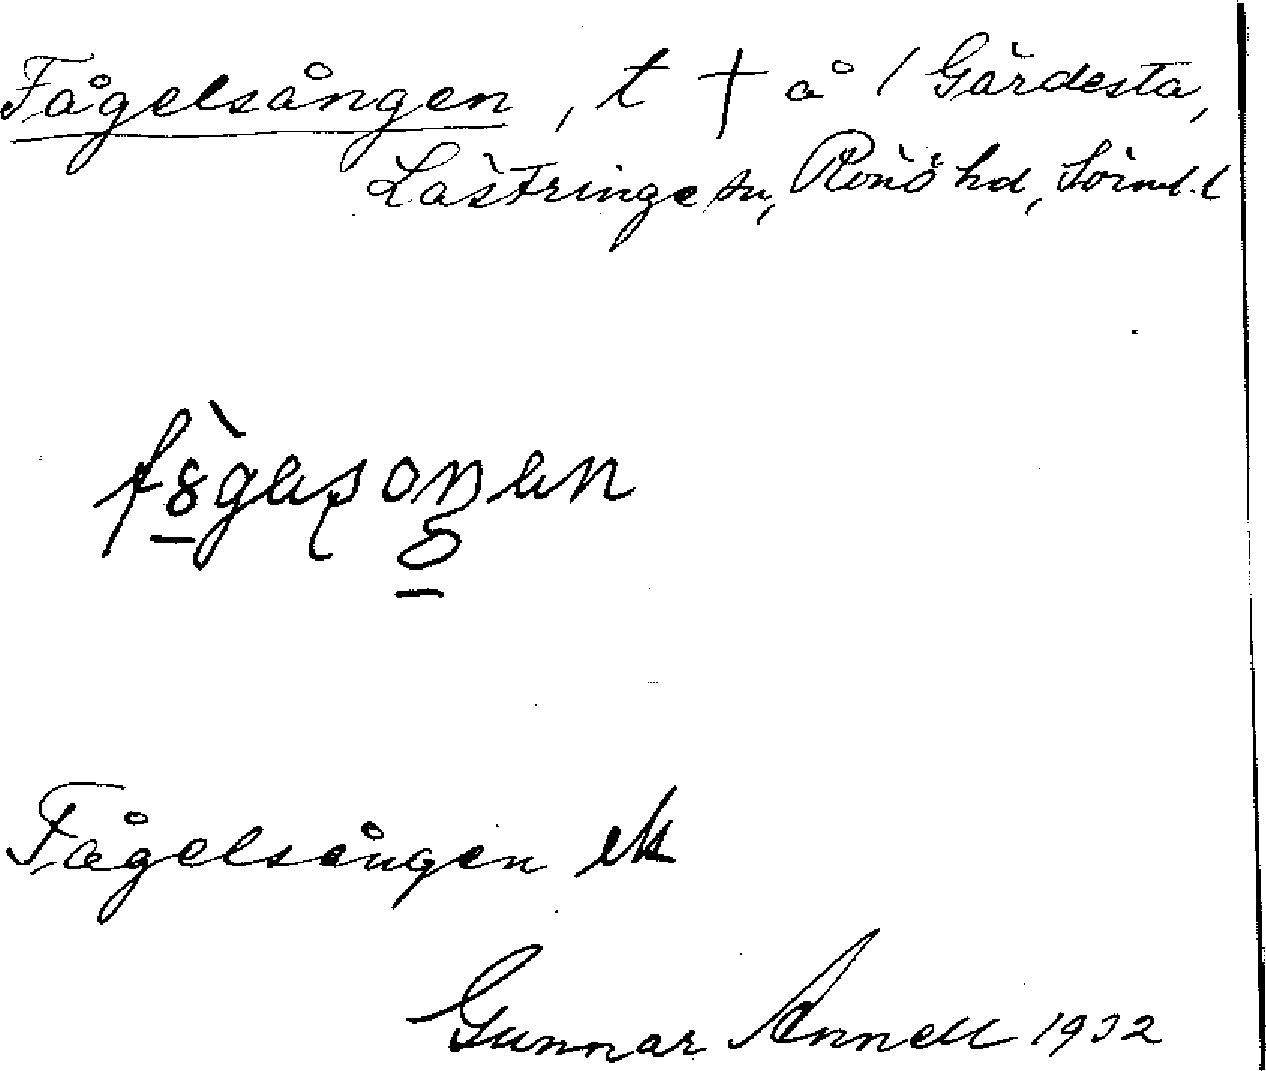 Fågelsången, t † å / Gärdesta,
Lästringe sn, Rönö hd, Sörml. l
Fågelsången ek
Gunnar Annell 1932